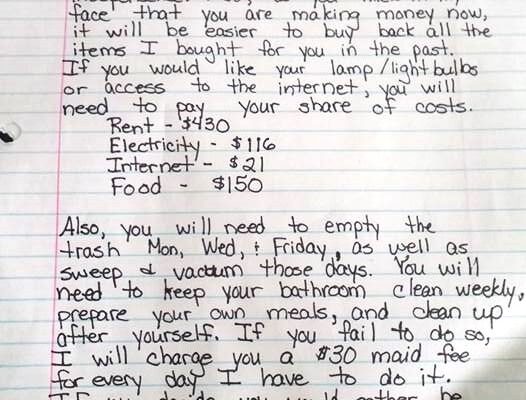 face that you are making money now,
it will be easier to buy back all the
items I bought for you in the past.
If you would like your lamp/lightbulbs
or access to the internet, you will
need to pay your share of costs.
Rent - $430
Electricity - $116
Internet - $21
Food - $150
Also, you will need to empty the
trash Mon, Wed, & Friday, as well as
sweep & vacuum those days. You will
need to keep your bathroom clean weekly,
prepare your own meals, and clean up
after yourself. If you fail to do so,
I will charge you a $30 maid fee
for every day I have to do it.